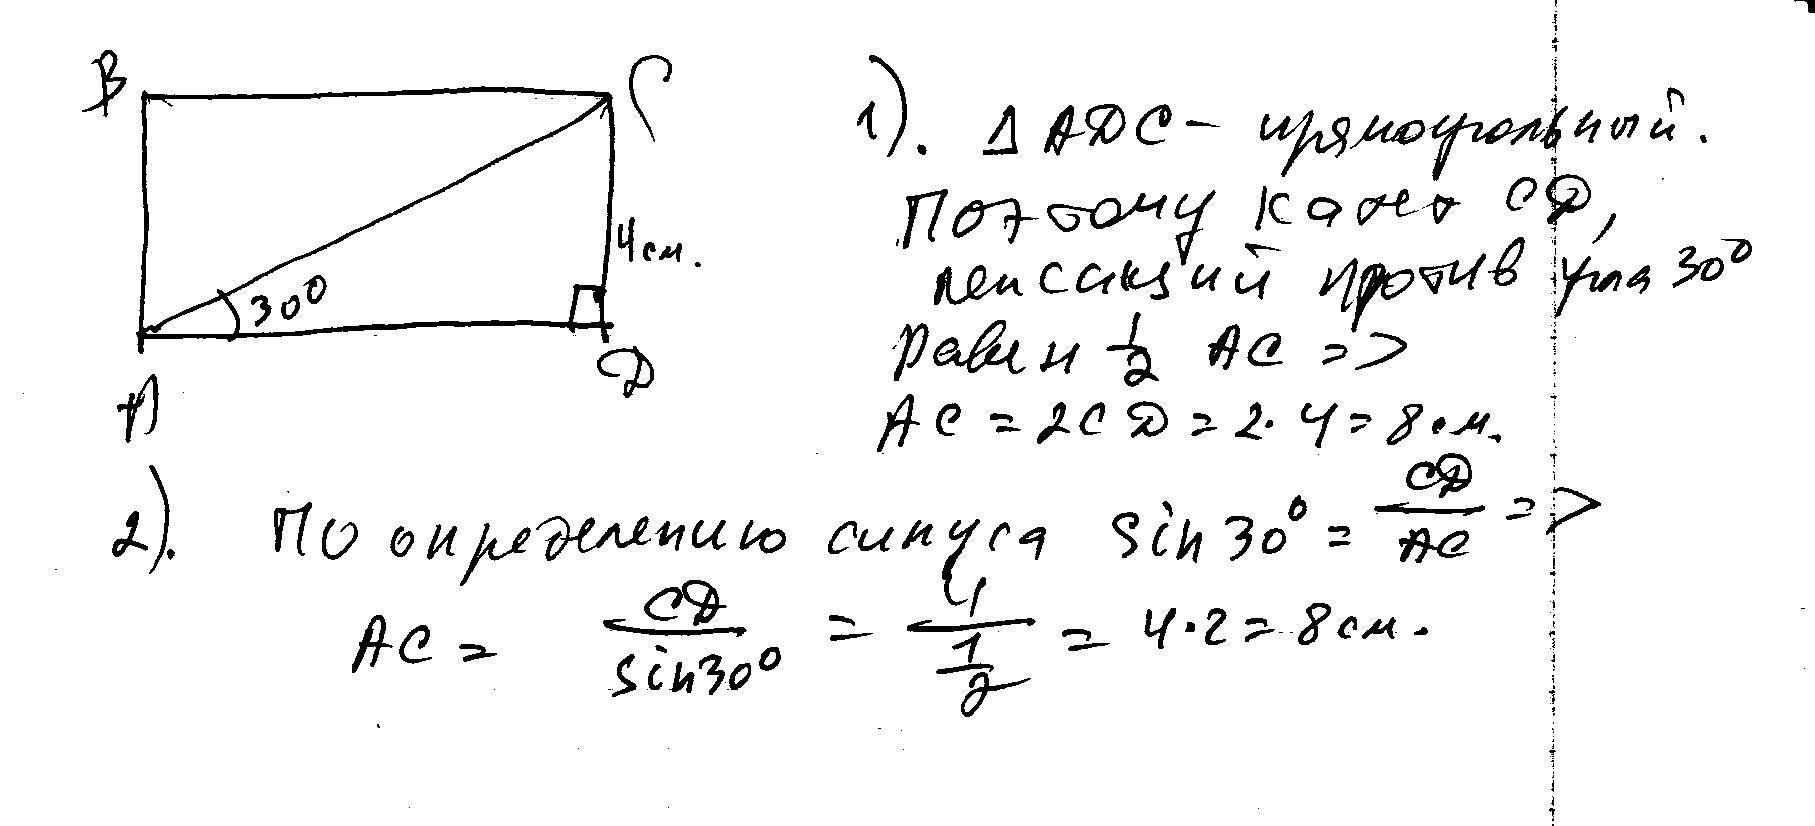 B
C
4см.
30°
D
A
1). Δ ADC – прямоугольный.
Поэтому катет CD,
лежащий против угла 30°
равен 1/2 AC =>
AC = 2CD = 2·4 = 8 см.
2). По определению синуса sin30° = CD/AC =>
AC = CD/sin30° = 4/(1/2) = 4·2 = 8см.